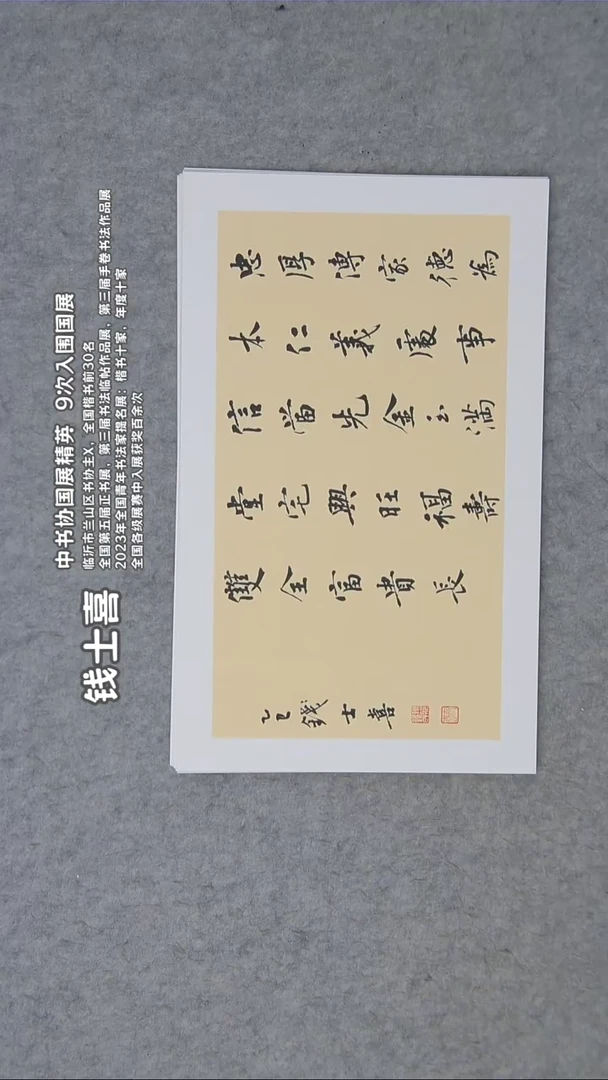 钱士喜
中书协国展精英 9次入围国展
临沂市兰山区书协主X，全国楷书前30名
全国第五届正书展、第三届书法临帖作品展、第三届手卷书法作品展
2023年全国青年书法家提名展：楷书十家，年度十家
全国各级展赛中入展获奖百余次
忠厚傳家德為
本仁義處事
信當先金玉滿
堂宅興旺福壽
雙全富貴長
乙巳錢士喜